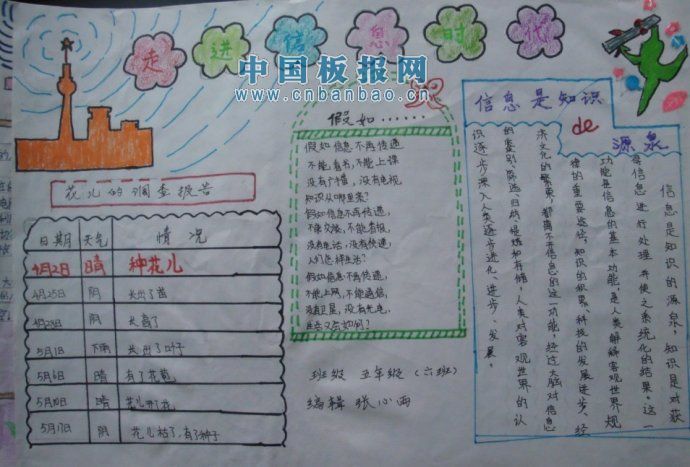 走进信息时代
中国板报网
www.cnbanbao.cn
花儿的调查报告
日期 天气 情况
4月2日 晴 种花儿
4月25日 阴 长出了苗
4月28日 阴 长高了
5月1日 下雨 长出了叶子
5月6日 晴 有了花苞
5月10日 晴 花儿开了花
5月17日 阴 花儿枯了,有了种子
假如……
假如信息不再传递,
不能看书,不能上课
没有广播,没有电视,
知识从哪里来?
假如信息不再传递,
不能交谈,不能看报,
没有电话,没有快递,
人们怎样生活?
假如信息不再传递,
不能上网,不能通信,
没有卫星,没有光电,
生态又会如何?
班级 五年级(六班)
编辑 张心雨
信息是知识
de
源泉
信息是知识的源泉,知识是对获
得信息进行处理并使之系统化的结果。这一
功能是信息的基本功能,是人类解释客观世界规
律的重要途径,知识的积累、科技的发展进步、经
济文化的繁荣,都离不开信息的这一功能,经过大脑对信息
的鉴别筛选归纳,提炼和存储,人类对客观世界的认
识逐步深入,人类逐步进化、进步、发展。